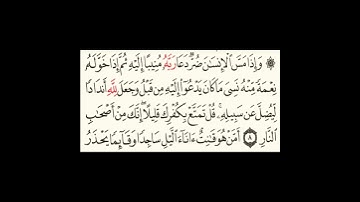 ۞ وَإِذَا مَسَّ ٱلْإِنسَٰنَ ضُرٌّ دَعَا رَبَّهُۥ مُنِيبًا إِلَيْهِ ثُمَّ إِذَا خَوَّلَهُۥ
نِعْمَةً مِّنْهُ نَسِىَ مَا كَانَ يَدْعُوٓا۟ إِلَيْهِ مِن قَبْلُ وَجَعَلَ لِلَّهِ أَندَادًا
لِّيُضِلَّ عَن سَبِيلِهِۦ ۚ قُلْ تَمَتَّعْ بِكُفْرِكَ قَلِيلًا ۖ إِنَّكَ مِنْ أَصْحَٰبِ
ٱلنَّارِ ٨ أَمَّنْ هُوَ قَٰنِتٌ ءَانَآءَ ٱلَّيْلِ سَاجِدًا وَقَآئِمًا يَحْذَرُ